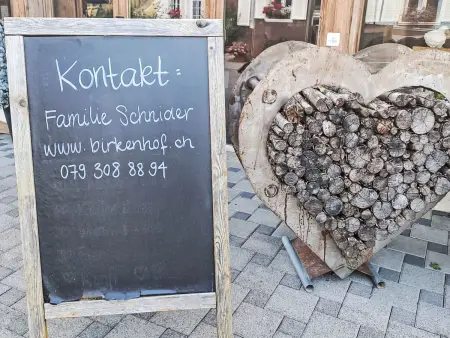 Kontakt:
Familie Schnider
www.birkenhof.ch
079 308 88 94